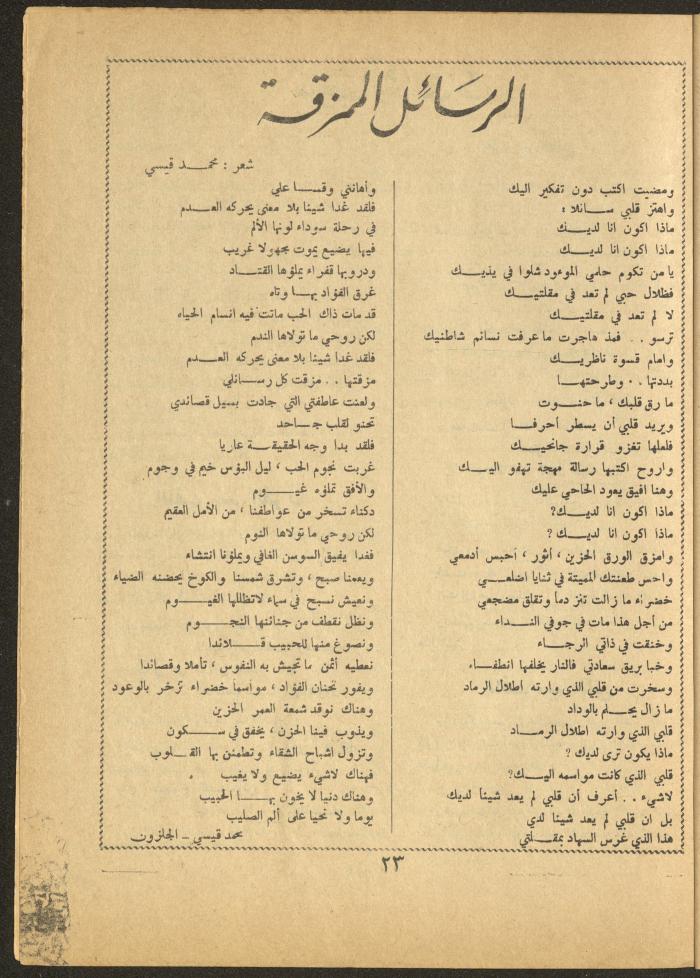 الرسائل الممزقة
شعر : محمد قيسي
ومضيت اكتب دون تفكير اليك
واهتز قلبي سائلا :
ماذا اكون انا لديك
ماذا اكون انا لديك
يا من تكوم حلمي الموءود شلوا في يديك
فظلال حبي لم تعد في مقلتيك
لا لم تعد في مقلتيك
ترسو . . فمذ هاجرت ما عرفت نسائم شاطئيك
وامام قسوة ناظريك
بددتها . . وطرحتها
ما رق قلبك ، ما حنوت
ويريد قلبي أن يسطر أحرفا
فلعلها تغزو قرارة جانحيك
واروح اكتبها رسالة مهجة تهفو اليك
وهنا افيق يعود الحاحي عليك
ماذا اكون انا لديك؟
ماذا اكون انا لديك ؟
وامزق الورق الحزين ، أثور ، أحبس أدمعي
واحس طعنتك المميتة في ثنايا اضلعي
خضراء ما زالت تنز دماً وتقلق مضجعي
من أجل هذا مات في جوفي النداء
وخنقت في ذاتي الرجاء
وخبا بريق سعادتي فالنار يخلفها انطفاء
وسخرت من قلبي الذي وارته اطلال الرماد
ما زال يحلم بالوداد
قلبي الذي وارته اطلال الرماد
ماذا يكون ترى لديك ؟
قلبي الذي كانت مواسمه اليك؟
لاشيء . . أعرف أن قلبي لم يعد شيئاً لديك
بل ان قلبي لم يعد شيئا لدي
هذا الذي غرس السهاد بمقلتي
وأهانني وقسا علي
فلقد غدا شيئا بلا معنى يحركه العدم
في رحلة سوداء لونها الألم
فيها يضيع يموت مجهولا غريب
ودروبها قفراء يملؤها القتاد
غرق الفؤاد بها وتاه
قد مات ذاك الحب ماتت فيه انسام الحياه
لكن روحي ما تولاها الندم
فلقد غدا شيئا بلا معنى يحركه العدم
مزقتها . . مزقت كل رسائلي
ولعنت عاطفتي التي جادت بسيل قصائدي
تحنو لقلب جاحد
فلقد بدا وجه الحقيقة عاريا
غربت نجوم الحب ، ليل البؤس خيم في وجوم
والأفق تملؤه غيوم
دكناء تسخر من عواطفنا ، من الأمل العقيم
لكن روحي ما تولاها النوم
فغدا يفيق السوسن الغافي ويملؤنا انتشاء
ويعمنا صبح ، وتشرق شمسنا والكوخ يحضنه الضياء
ونعيش نسبح في سماء لاتظللها الغيوم
ونظل نقطف من جنائنها النجوم
ونصوغ منها للحبيب قلائدا
نعطيه أثمن ما تجيش به النفوس ، تأملا وقصائدا
ويفور تحنان الفؤاد ، مواسما خضراء تزخر بالوعود
وهناك نوقد شمعة العمر الحزين
ويذوب فينا الحزن ، يخفق في سكون
وتزول اشباح الشقاء وتطمئن بها القلوب
فهناك لاشيء يضيع ولا يغيب
وهناك دنيا لا يخون بها الحبيب
يوما ولا نحيا على ألم الصليب
محمد قيسي – الجلزون
٢٣